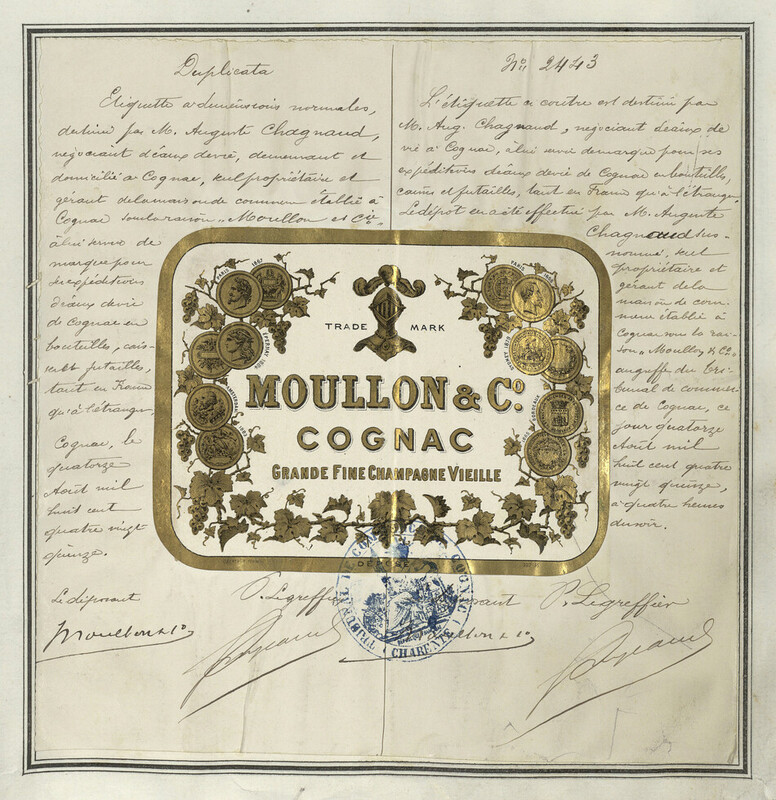 Duplicata
Etiquette a dimensions normales,
destiné par M. Auguste Chagnaud,
négociant d'eaux devie, demeurant et
domicilié à Cognac, seul propriétaire et
gérant delamaison de commerce établie à
Cognac sous la raison „Moullon et Cie
à lui servir de
marque pour
ses expéditions
d'eaux devie
de Cognac en
bouteilles, cais-
ses et futailles,
tant en France
qu'à l'étranger.
Cognac, le
quatorze
Août mil
huit cent
quatre vingt-
quinze.
Le déposant
Moullon & Co
P. Legreffier
No 2443
L'étiquette ci contre est destiné par
M. Aug. Chagnaud, négociant d'eaux de
vie à Cognac, à lui servir de marque pour ses
expéditions d'eaux devie de Cognac en bouteilles,
caisses et futailles, tant en France qu'à l'étranger.
Le dépot en a été effectué par M. Auguste
Chagnaud sus-
nommé, seul
propriétaire et
gérant de la
maison de com-
merce établie à
Cognac sous la rai-
son „Moullon & Co"
au greffe du Tri-
bunal de commer-
ce de Cognac, ce
jour quatorze
Août mil
huit cent quatre
vingt quinze,
à quatre heures
du soir.
P. Legreffier
TRADE MARK
MOULLON & Co.
COGNAC
GRANDE FINE CHAMPAGNE VIEILLE
DÉPOSÉ
TRIBUNAL DE COMMERCE COGNAC
(CHARENTE)
PARIS 1867